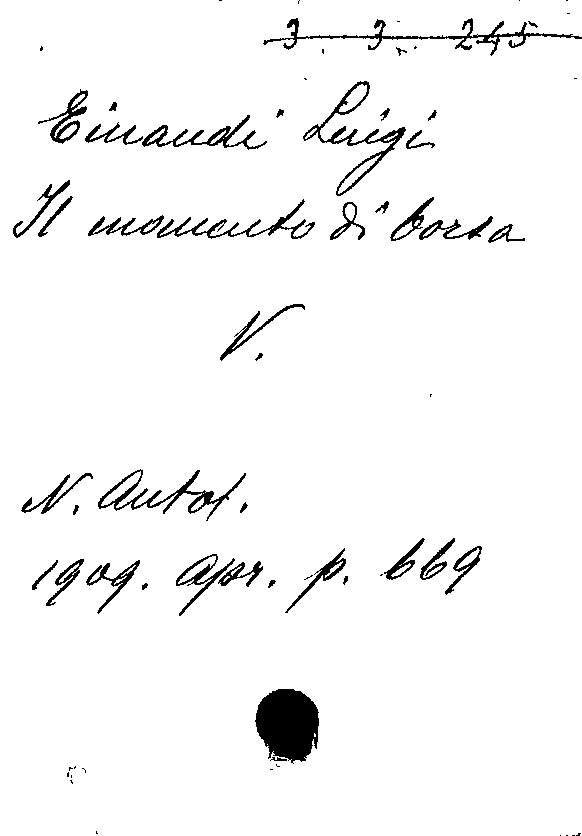 3. 3. 245
Einaudi Luigi
Il momento di borsa
V.
N. Antol.
1909. Apr. p. 669